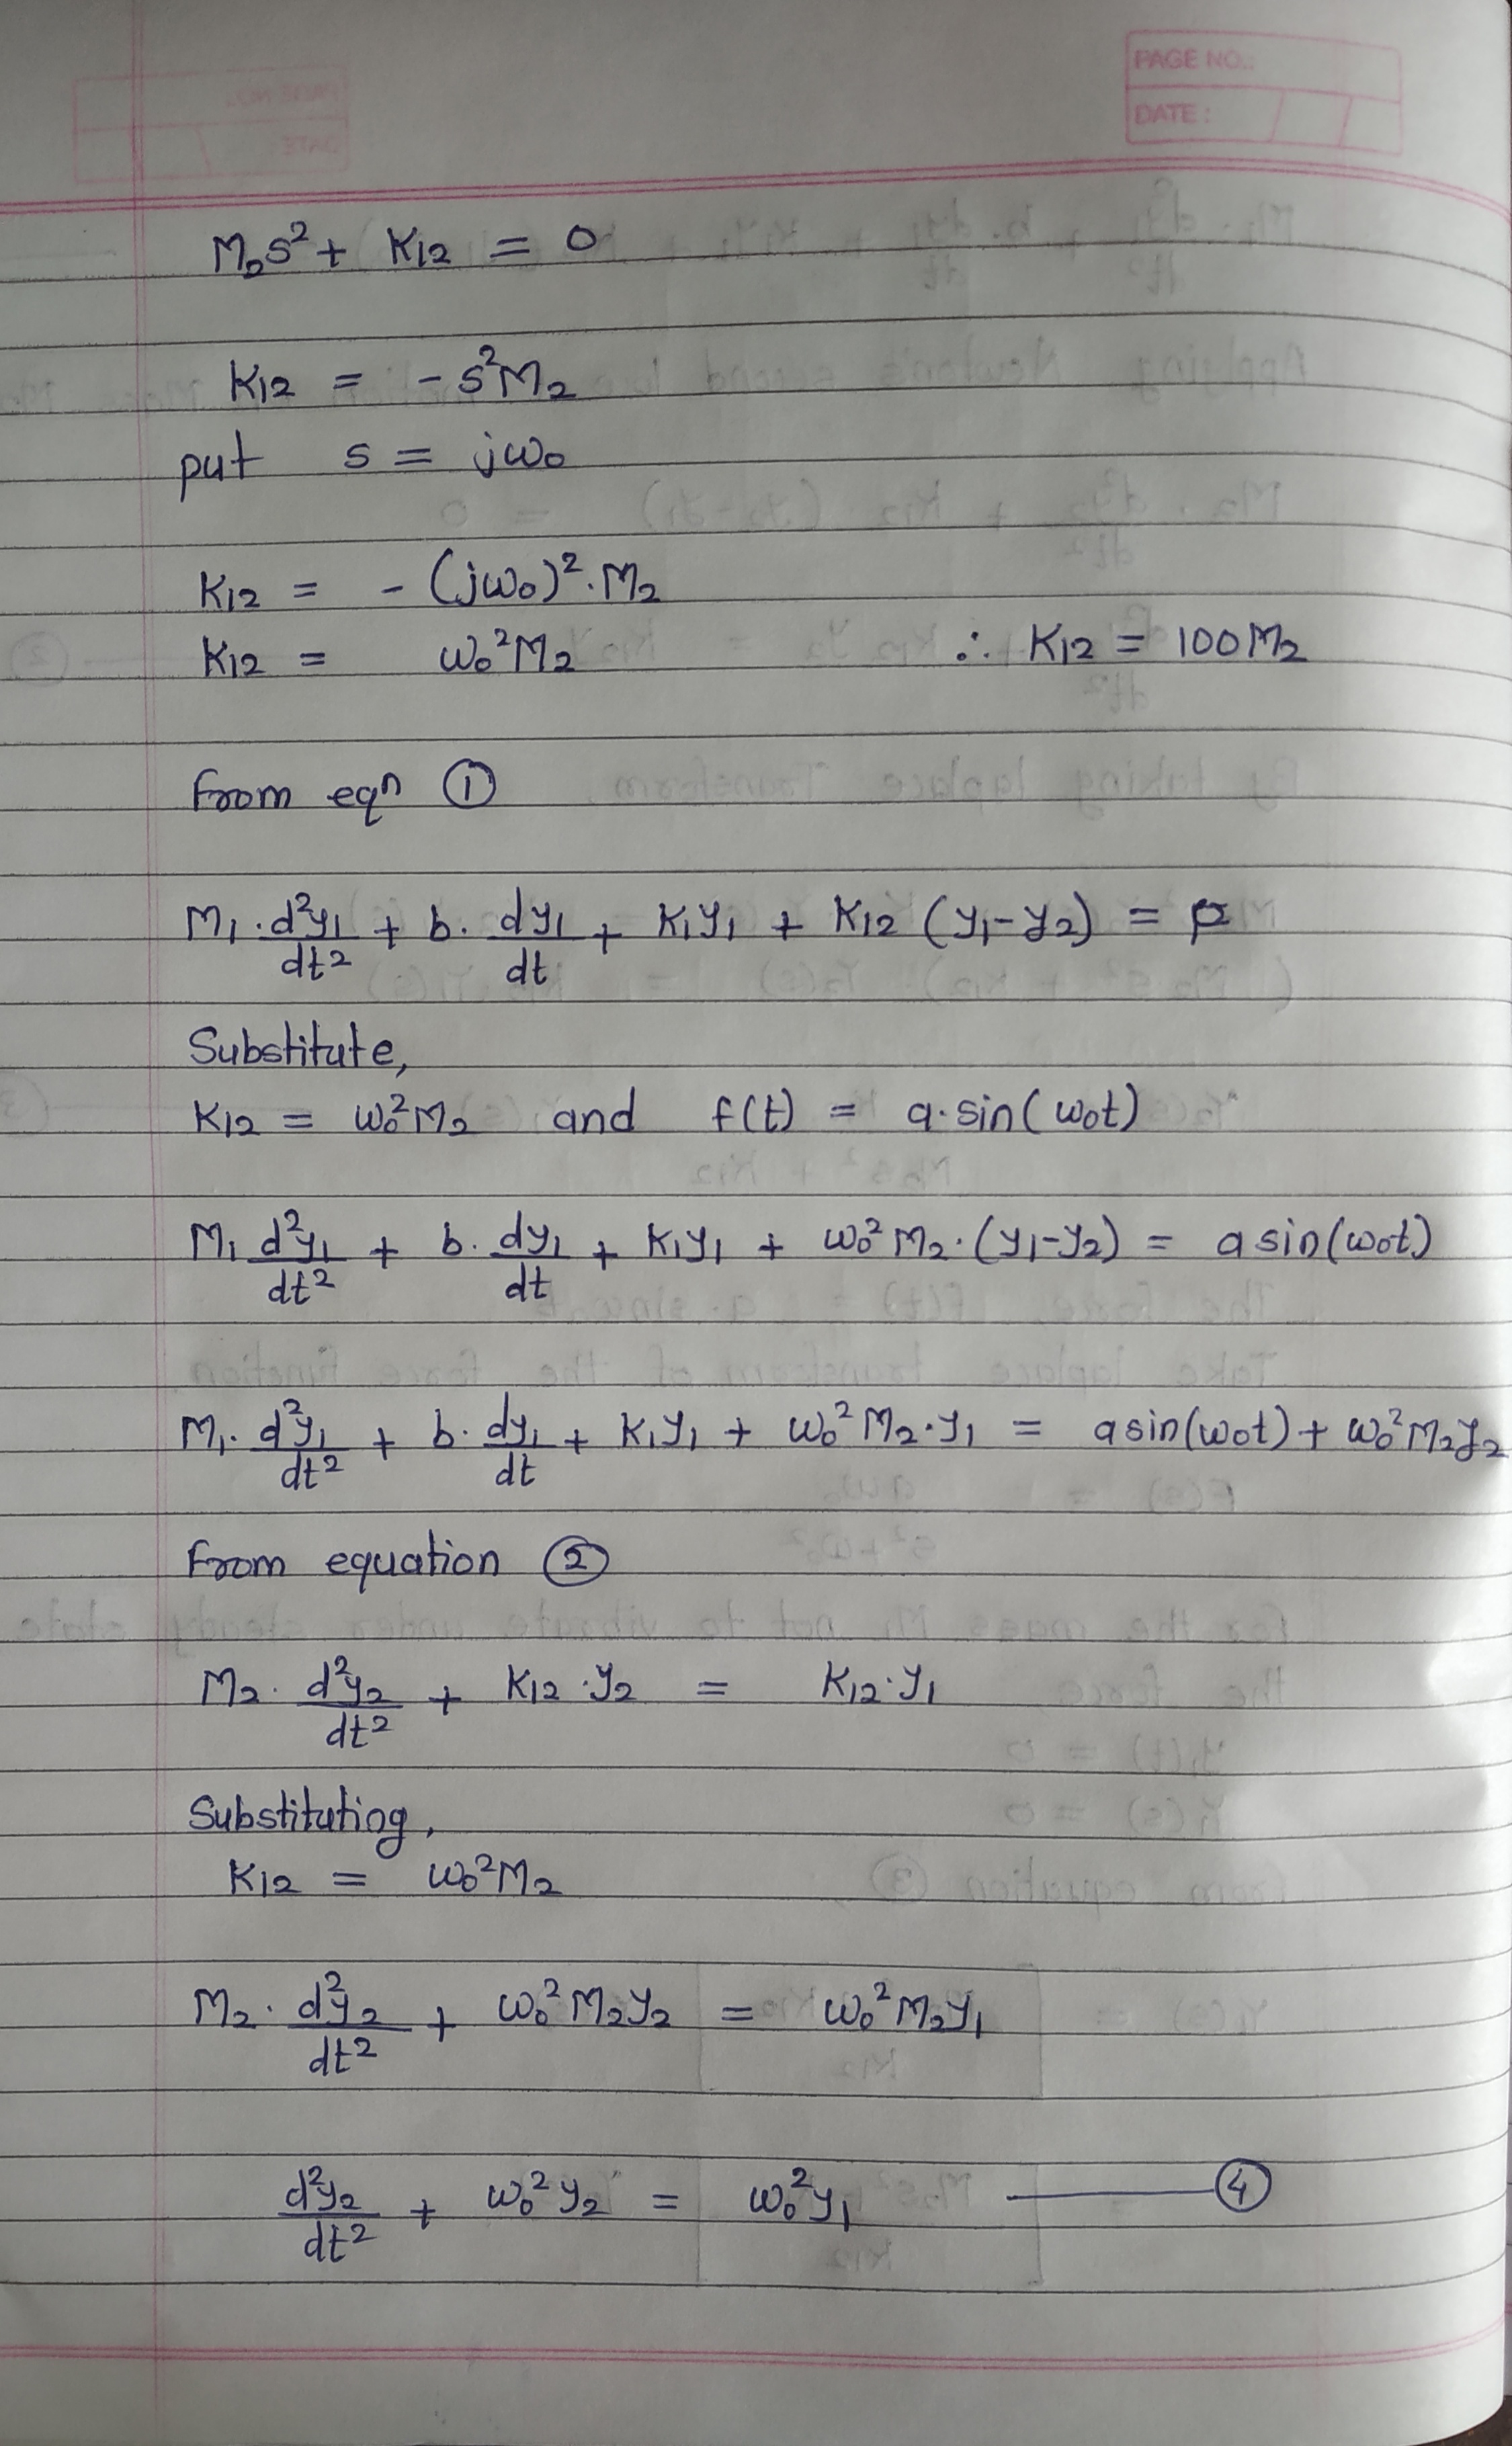 PAGE NO.:
DATE:
M₂s² + K12 = 0
K12 = -s²M2
put s = jω₀
K12 = - (jω₀)².M2
K12 = ω₀²M2 ∴ K12 = 100M2
From eqn ①
M1 . d²y1/dt² + b. dy1/dt + K1y1 + K12 (y1-y2) = F
Substitute,
K12 = ω₀²M2 and f(t) = a.sin(ω₀t)
M1 d²y1/dt² + b. dy1/dt + K1y1 + ω₀²M2.(y1-y2) = a sin(ω₀t)
M1. d²y1/dt² + b. dy1/dt + K1y1 + ω₀²M2.y1 = a sin(ω₀t) + ω₀²M2y2
From equation ②
M2 . d²y2/dt² + K12 .y2 = K12.y1
Substituting,
K12 = ω₀²M2
M2 . d²y2/dt² + ω₀²M2y2 = ω₀²M2y1
d²y2/dt² + ω₀²y2 = ω₀²y1 —— ④